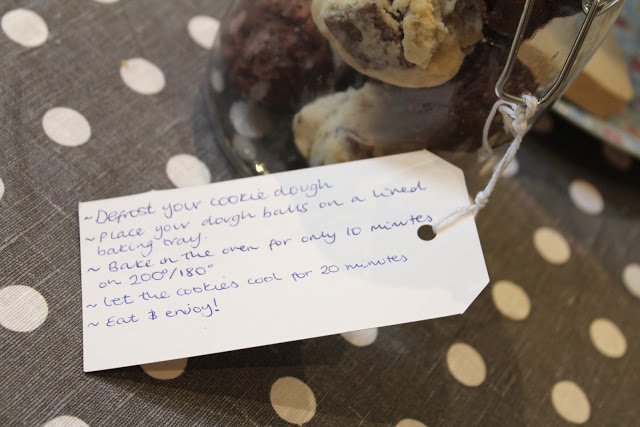 ~ Defrost your cookie dough
~ Place your dough balls on a lined
baking tray.
~ Bake in the oven for only 10 minutes
on 200°/180°
~ Let the cookies cool for 20 minutes
~ Eat & enjoy!